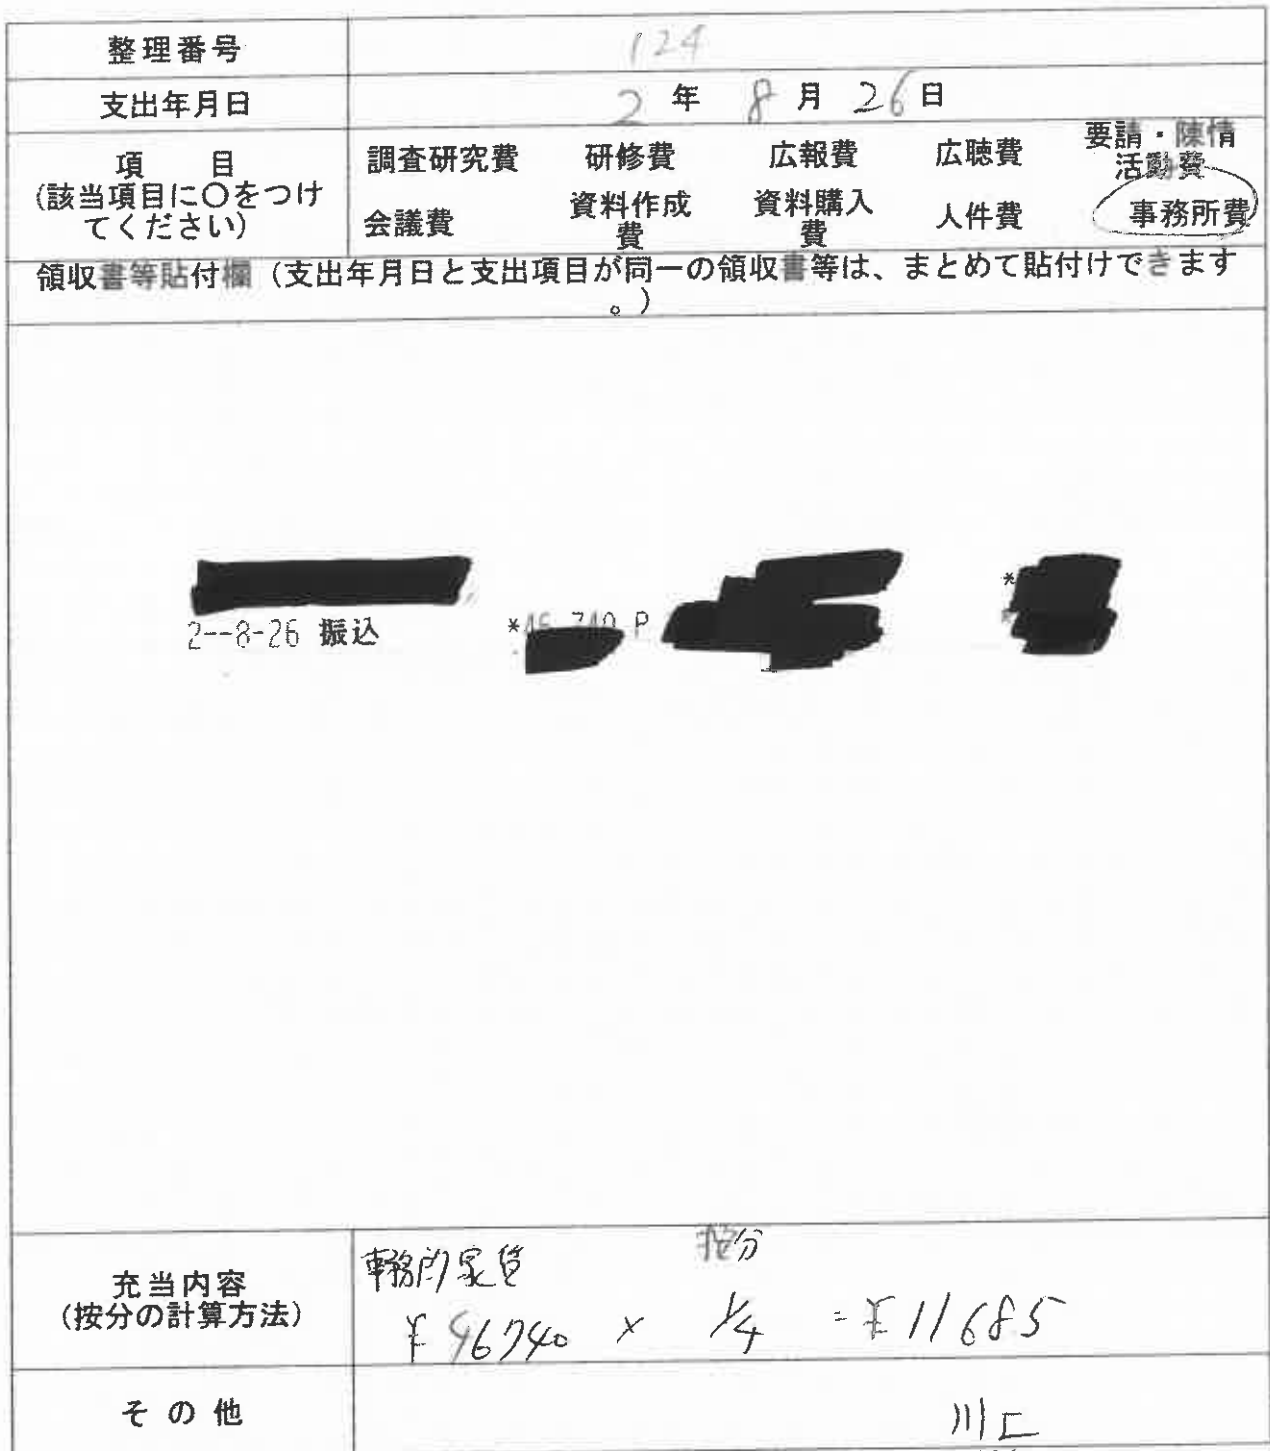 整理番号 124
支出年月日 2 年 8 月 26 日
項　目
(該当項目に〇をつけ
てください)
調査研究費 研修費 広報費 広聴費 要請・陳情
活動費
会議費 資料作成
費 資料購入
費 人件費 事務所費
領収書等貼付欄（支出年月日と支出項目が同一の領収書等は、まとめて貼付けできます
。）
2--8-26 振込 *46,740 P
*
*
充当内容
(按分の計算方法)
事務所家賃 按分
¥46740 × 1/4 = ¥11685
その他